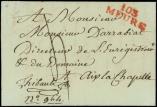 103
MEURS
A Monsieur
Monsieur Darradiat
Directeur de l'Enregistrement
& du Domaine
à Aix la Chapelle